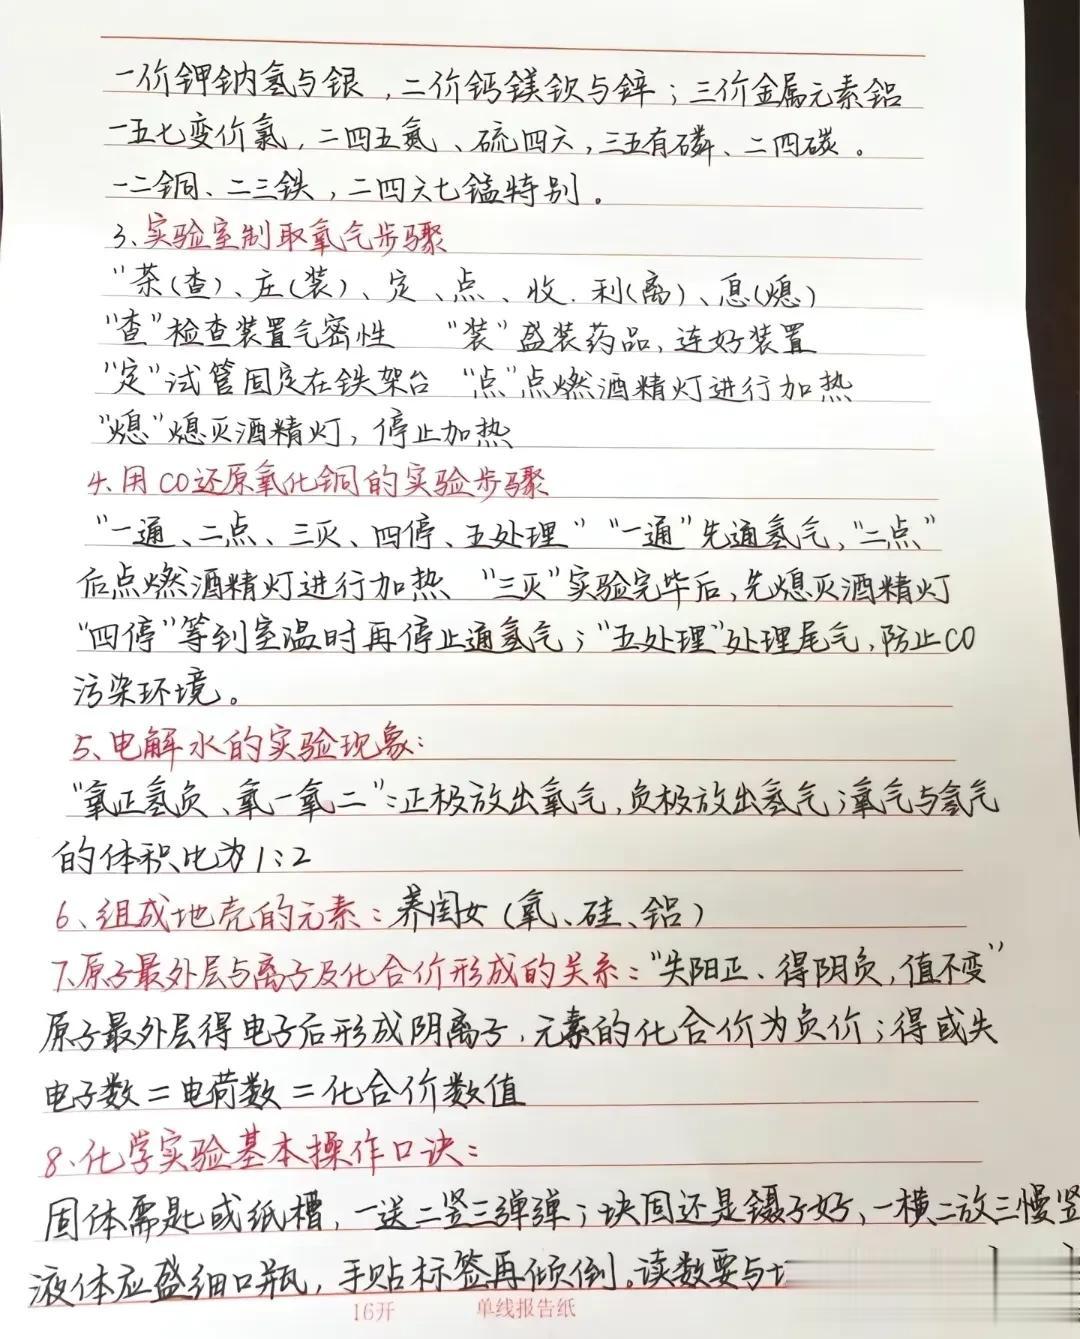 一价钾钠氢与银，二价钙镁钡与锌；三价金属元素铝
一五七变价氯，二四五氮、硫四六，三五有磷、二四碳。
一二铜、二三铁，二四六七锰特别。
3、实验室制取氧气步骤
"茶(查)、庄(装)、定、点、收、利(离)、息(熄)
"查"检查装置气密性 "装"盛装药品，连好装置
"定"试管固定在铁架台 "点"点燃酒精灯进行加热
"熄"熄灭酒精灯，停止加热
4、用CO还原氧化铜的实验步骤
"一通、二点、三灭、四停、五处理" "一通"先通氢气，"二点"
后点燃酒精灯进行加热 "三灭"实验完毕后，先熄灭酒精灯
"四停"等到室温时再停止通氢气；"五处理"处理尾气，防止CO
污染环境。
5、电解水的实验现象：
"氧正氢负、氧一氧二"：正极放出氧气，负极放出氢气；氧气与氢气
的体积比为1：2
6、组成地壳的元素：养闺女（氧、硅、铝）
7、原子最外层与离子及化合价形成的关系："失阳正、得阴负，值不变"
原子最外层得电子后形成阴离子，元素的化合价为负价；得或失
电子数＝电荷数＝化合价数值
8、化学实验基本操作口诀：
固体需匙或纸槽，一送二竖三弹弹；块固还是镊子好，一横二放三慢竖
液体应盛细口瓶，手贴标签再倾倒。读数要与
16开 单线报告纸